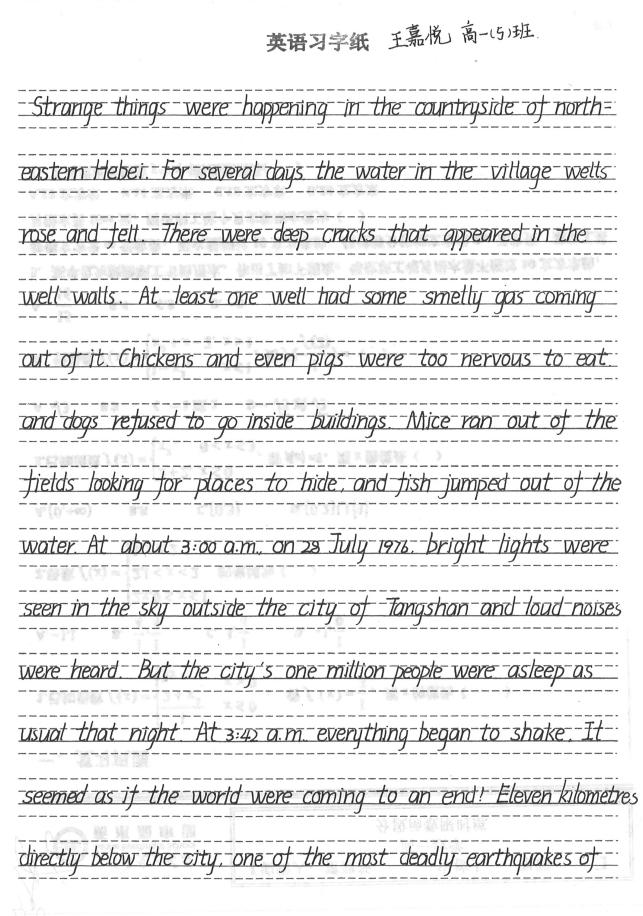 英语习字纸 王嘉悦 高一(5)班.
Strange things were happening in the countryside of north-
eastern Hebei. For several days the water in the village wells
rose and fell. There were deep cracks that appeared in the
well walls. At least one well had some smelly gas coming
out of it. Chickens and even pigs were too nervous to eat.
and dogs refused to go inside buildings. Mice ran out of the
fields looking for places to hide, and fish jumped out of the
water. At about 3:00 a.m., on 28 July 1976, bright lights were
seen in the sky outside the city of Tangshan and loud noises
were heard. But the city's one million people were asleep as
usual that night. At 3:42 a.m. everything began to shake. It
seemed as if the world were coming to an end! Eleven kilometres
directly below the city, one of the most deadly earthquakes of